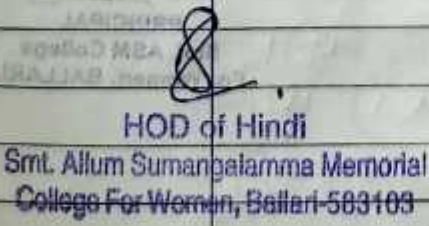 HOD of Hindi
Smt. Allum Sumangalamma Memorial
College For Women, Ballari-583103